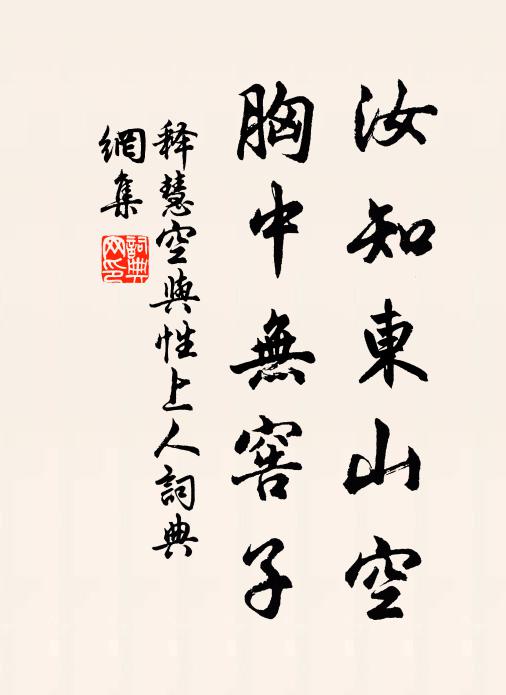 汝知東山空
胸中無窖子
释慧空與性上人詞典
網集
詞典网印